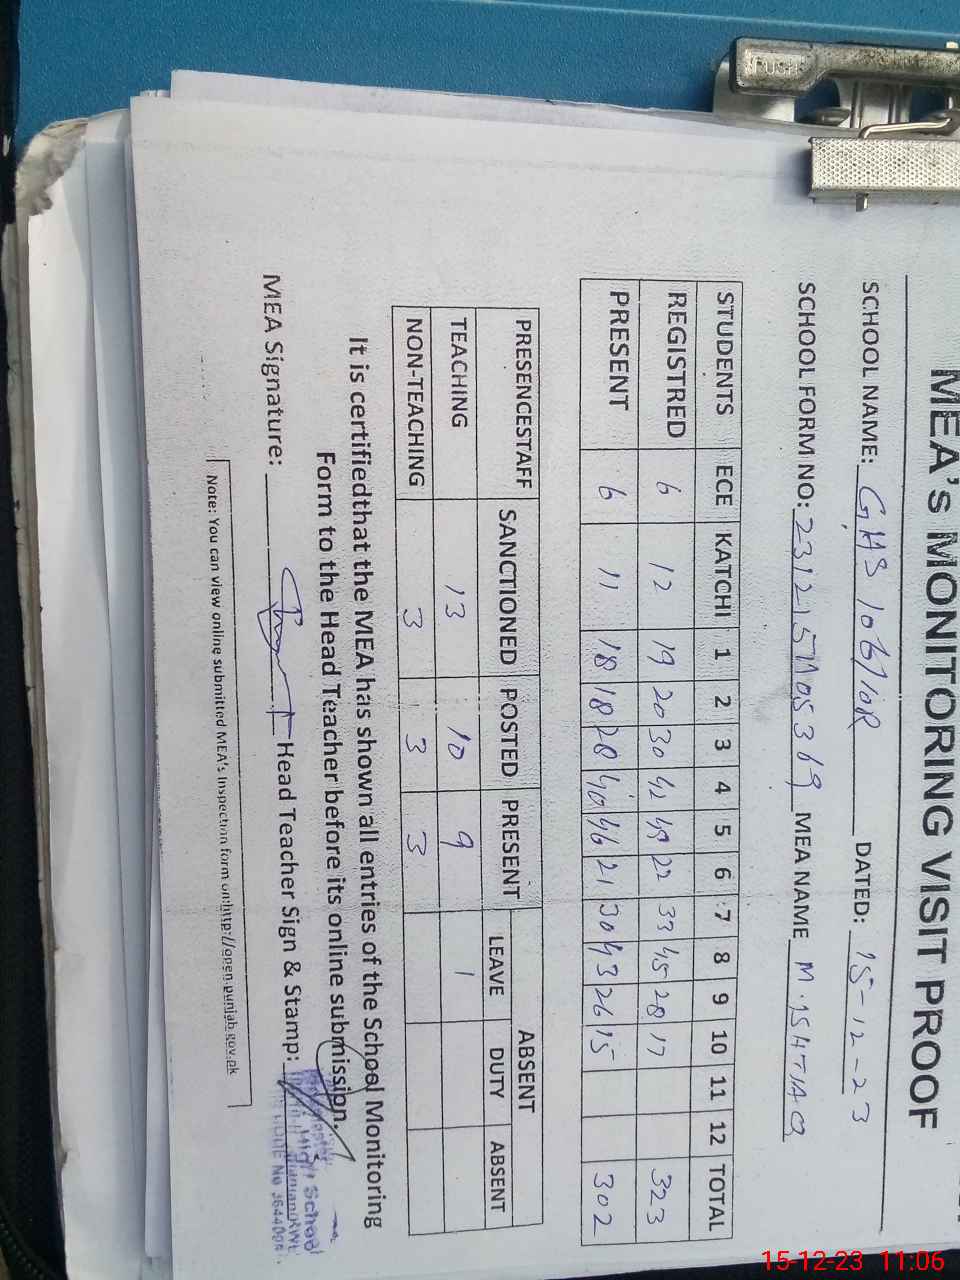 PUSH
MEA's MONITORING VISIT PROOF
SCHOOL NAME: GHS 106/10R DATED: 15-12-23
SCHOOL FORM NO: MEA NAME M. ISHTIAQ
STUDENTS ECE KATCHI 1 2 3 4 5 6 7 8 9 10 11 12 TOTAL
REGISTRED 6 12 19 20 30 42 49 22 33 45 28 17 323
PRESENT 6 11 18 18 28 40 46 21 30 43 26 15 302
PRESENCESTAFF SANCTIONED POSTED PRESENT ABSENT
LEAVE DUTY ABSENT
TEACHING 13 10 9 1
NON-TEACHING 3 3 3
It is certifiedthat the MEA has shown all entries of the School Monitoring
Form to the Head Teacher before its online submission.
MEA Signature: Head Teacher Sign & Stamp:
High School
Note: You can view online submitted MEA's Inspection form on:http://open.punjab.gov.pk
15-12-23 11:06